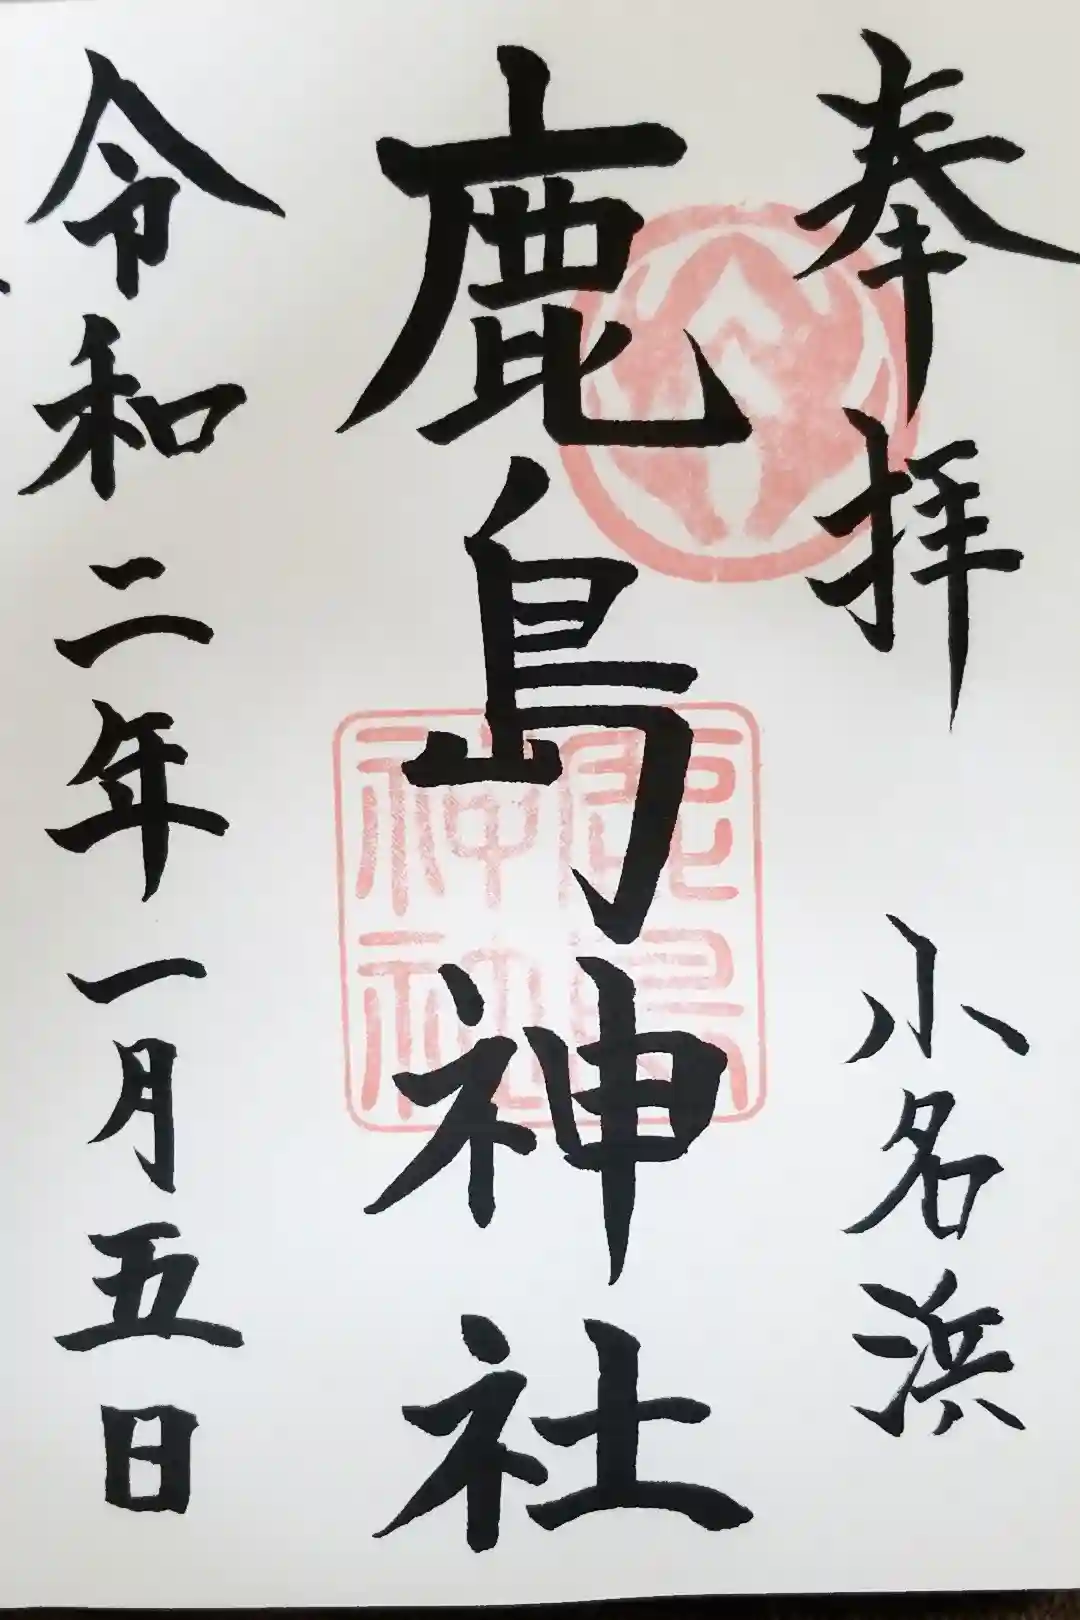 奉拝
小名浜
鹿島神社
鹿島
神社
令和二年一月五日